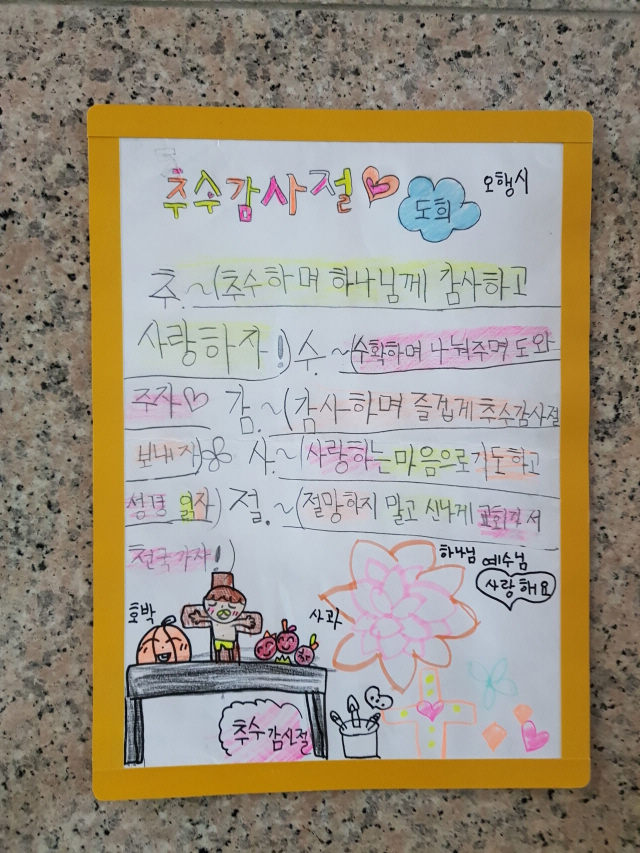 추수감사절
도희
오행시
추.~(추수하며 하나님께 감사하고
사랑하자!) 수.~(수확하며 나눠주며 도와
주자♡ 감.~(감사하며 즐겁게 추수감사절
보내자) 사.~(사랑하는 마음으로 기도하고
성경 읽자) 절.~(절망하지 말고 신나게 교회가서
천국가자!)
하나님 예수님
사랑해요
호박
사과
추수감사절